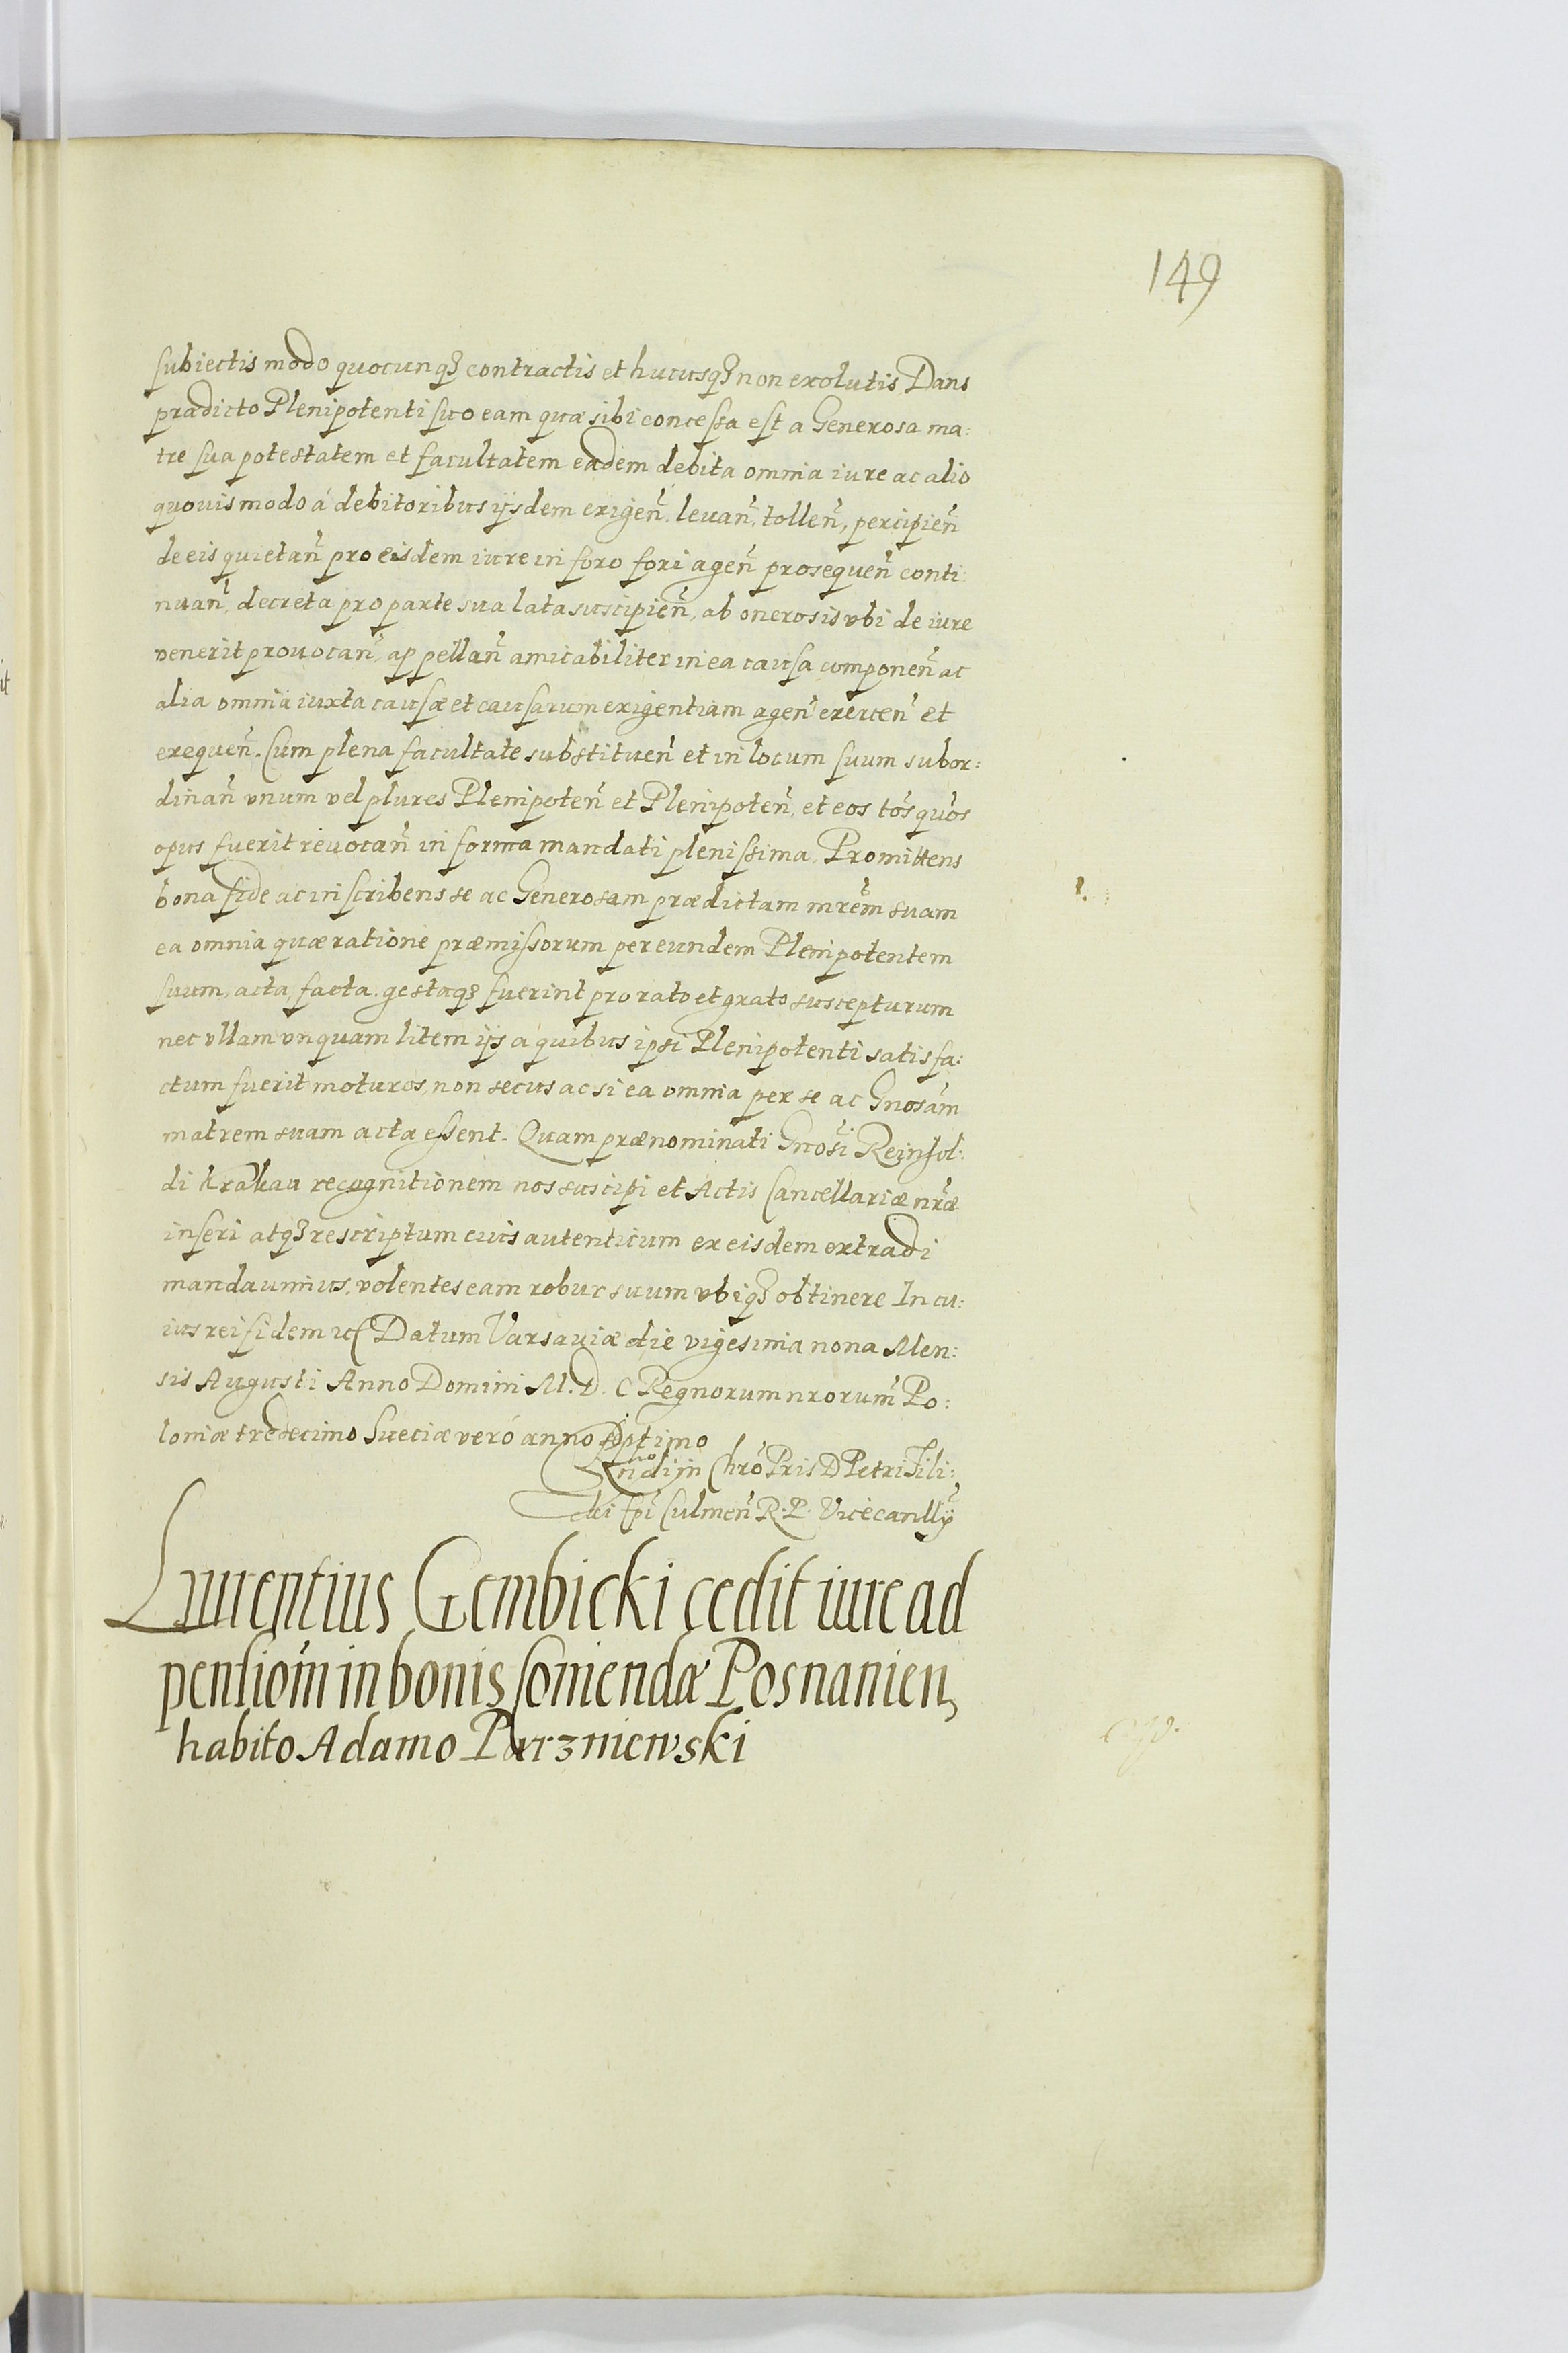 149
subiectis modo quocunqꝫ contractis et hucusqꝫ non exolutis Dans
pradicto Plenipotenti suo eam quæ sibi concessa est a Generosa ma:
tre sua potestatem et facultatem eadem debita omnia iure ac alio
quouis modo á debitoribus ijsdem exigen̄. leuan̄, tollen̄, percipien̄
de eis quietan̄ pro eisdem iure in foro fori agen̄ prosequen̄ conti:
nuan̄, decreta pro parte sua lata suscipien̄, ab onerosis vbi de iure
venerit prouocan̄, appellan̄ amicabiliter in ea causa componen̄ ac
alia omnia iuxta causæ et causarum exigentiam agen̄ exercen̄ et
exequen̄. Cum plena facultate substituen̄ et in locum suum subor:
dinan̄ vnum vel plures Plenipoten̄ et Plenipoten̄, et eos to͞s quo͞s
opus fuerit reuocan̄ in forma mandati plenissima, Promittens
bona fide ac inscribens se ac Generosam prædictam mrēm suam
ea omnia quæ ratione præmissorum per eundem Plenipotentem
suum, acta, facta. gestaqꝫ fuerint pro rato et grato suscepturum
nec vllam vnquam litem ijs á quibus ipsi Plenipotenti satisfa:
ctum fuerit moturos, non secus ac si ea omnia per se ac Gnosām
matrem suam acta essent. Quam prænominati Gnosī Reinhol:
di Krakau recognitionem nos suscipi et Actis Cancellariæ nrǣ
inseri atqꝫ rescriptum eius autenticum ex eisdem extradi
mandauimus, volentes eam robur suum vbiqꝫ obtinere In cu:
ius rei fidem etc Datum Varsauiæ die vigesima nona Men:
sis Augusti Anno Domini M. D. C Regnorum nrorum̄ Po:
loniæ tredecimo Sueciæ veró anno septimo
Rndi in Chrō Pris D Petri Tili:
cki Epī Culmen̄ R. P. Vicecancllȳ
Laurentius Gembicki cedit iure ad
pensiom̄ in bonis Comendæ Posnanien,
habito Adamo Parzniewski